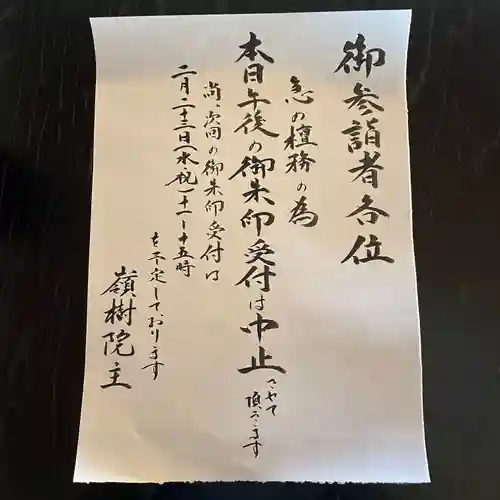 御参詣者各位
急の檀務の為
本日午後の御朱印受付は中止
させて
頂きます
尚、次回の御朱印受付は
二月二十三日(水祝)十一〜十五時
を予定しております
嶺樹院主